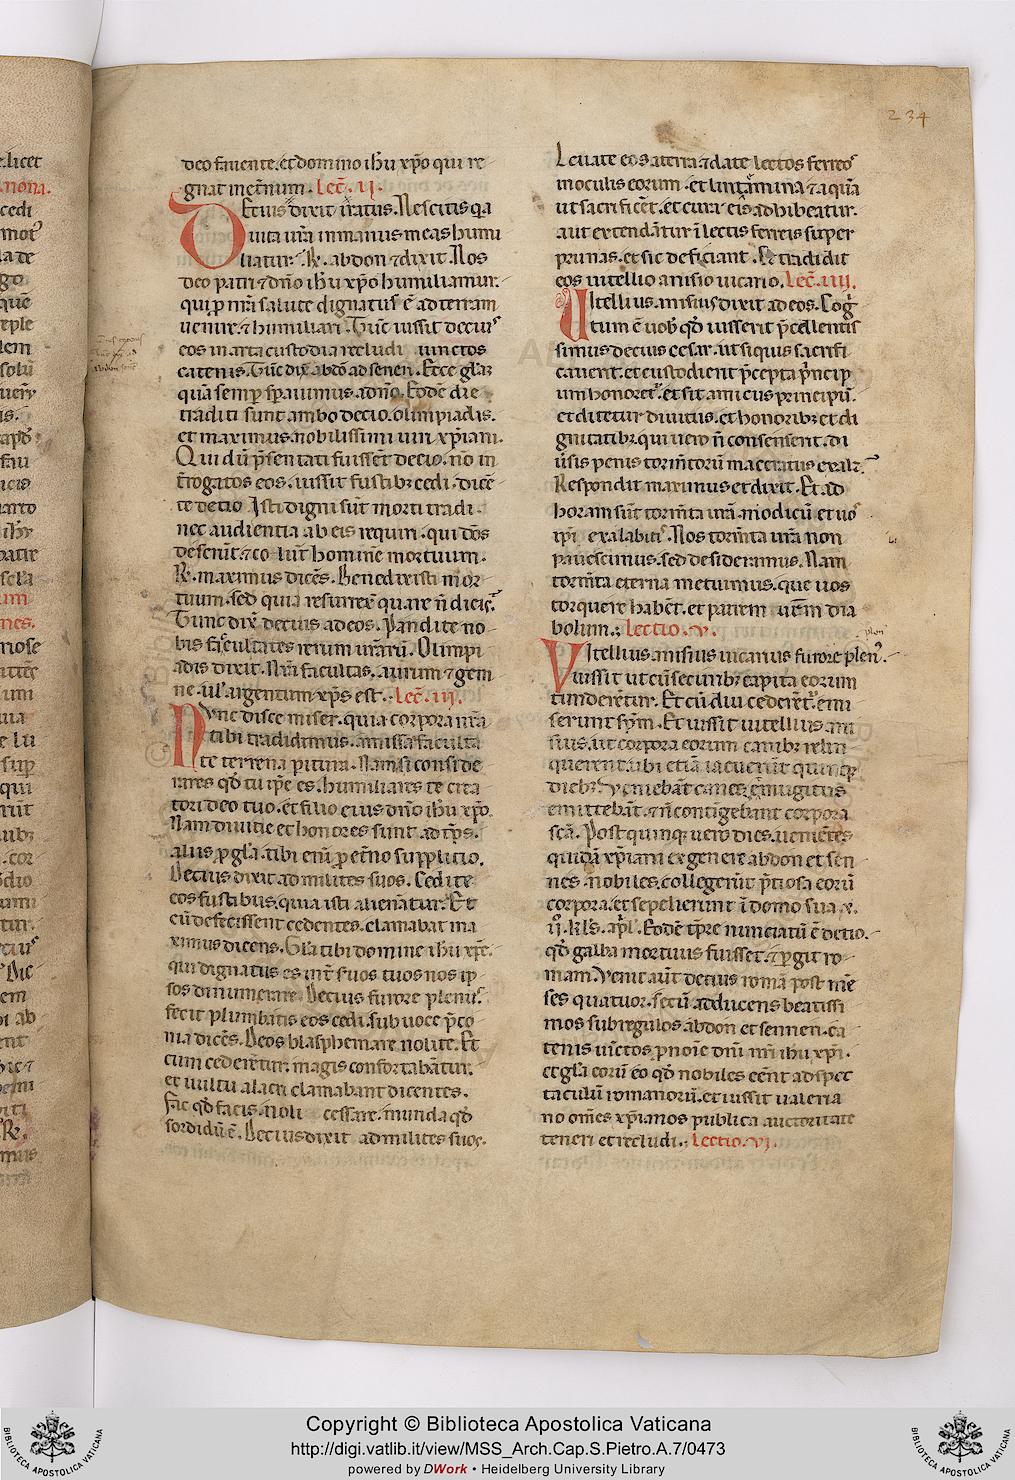 234
deo fauente. et domino ihu xpo qui re
gnat in etnum. Lec. ii.
Decius dixit iratus. Nescitis q a
uita ura in manus meas humi
liatur. R. abdon & dixit. Nos
deo patri & dno ihu xpo humiliamur.
qui p nra salute dignatus e ad terram
uenire. & humiliari. Tuc iussit decius
eos in arta custodia recludi uinctos
catenis. Tuc dix abdo ad senen. Ecce gla
qua semp sperauimus a dno. Eode die
traditi sunt ambo decio. olimpiadis.
et maximus. nobilissimi uiri xpiani.
Qui du psentati fuissent decio. no in
trogatos eos. iussit fustib; cedi. dice
te decio Isti digni sunt morti tradi.
nec audientia ab eis requiri. qui deos
deserunt. & colunt homine mortuum.
R. maximus dices. Benedixisti mor
tuum. sed quia resurrex quare n dicis?
Tunc dix decius ad eos. Pandite no
bis facultates rerum urarum. Olimpi
adis dixit. Nra facultas. aurum & gem
ne. ul argentum xps est. Lec. iii.
Nunc disce miser. quia corpora nra
tibi tradidimus. amissa faculta
te terrena pitura. Nam si conside
rares qd tu ipse es. humiliares te crea
tori deo tuo. et filio eius dno ihu xpo.
Nam diuitie et honores sunt ad tps.
aliis p gla. tibi eni p etno supplicio.
Decius dixit. ad milites suos. Cedite
eos fustibus. quia isti alienatur. Et
cu defecissent cedentes. clamabat ma
ximus dicens. Gla tibi domine ihu xpe.
qui dignatus es int suos tuos nos ip
sos dinumerare. Decius furore plenus.
fecit plumbatis eos cedi. sub uoce pco
nia dices. Deos blasphemare nolite. Et
cum cederentur. magis confortabantur.
et uultu alacri clamabant dicentes.
Fac qd facis. noli cessare. munda qd
sordidu e. Decius dixit ad milites suos.
Leuate eos a terra & date lectos ferreos
in oculis eorum. et lintamina & aqua
ut sacrificent. et cura eis adhibeatur.
aut extendantur i lectis ferreis super
prunas. et sic deficiant. Et tradidit
eos uitellio anisio uicario. Lec. iiii.
Vitellius. anisius dixit ad eos. Cog
tum e uob qd iusserit pcellentis
simus decius cesar. ut siquis sacrifi
cauerit. et custodient pcepta princip
um honoret. et sit amicus principu.
et ditetur diuitiis. et honorib; et di
gnitatib; qui uero n consenserit. di
uersis penis tormtoru maceratus exala.
Respondit maximus et dixit. Et ad
horam sunt tormta ura modicu et uos
ipi exalabitis. Nos tormta ura non
pauescimus. sed desideramus. Nam
tormta eterna metuimus. que uos
torquere habent. et patrem urm dia
bolum. Lectio. v.
Vitellius. anisius uicarius furore plen.
iussit ut cu securib; capita eorum
tunderentur. Et cu diu cederet. emi
serunt spm. Et iussit uitellius ani
sius. ut corpora eorum canib; relin
querent. ubi etia iacuerut quinq;
dieb; Veniebat canes & mugitus
emittebat. & n contigebant corpora
sca. Post quinq; uero dies. uenientes
quida xpiani ex genere abdon et sen
nes. nobiles. collegerut ptiosa eoru
corpora. et sepelierunt i domo sua. x.
ii. kls. apl. Eode tpre nunciatu e decio.
qd galba mortuus fuisset. & pgit ro
mam. Venit aut decius roma post me
ses quatuor. secu adducens beatissi
mos subregulos abdon et sennen. ca
tenis uinctos p noie dni nri ihu xpi.
et gla eoru eo qd nobiles eent ad spec
taculu romanoru. et iussit ualeria
no omes xpianos publica auctoritate
teneri et recludi. Lectio. vi.
Copyright © Biblioteca Apostolica Vaticana
http://digi.vatlib.it/view/MSS_Arch.Cap.S.Pietro.A.7/0473
powered by DWork • Heidelberg University Library
BIBLIOTECA APOSTOLICA VATICANA
BIBLIOTECA APOSTOLICA VATICANA